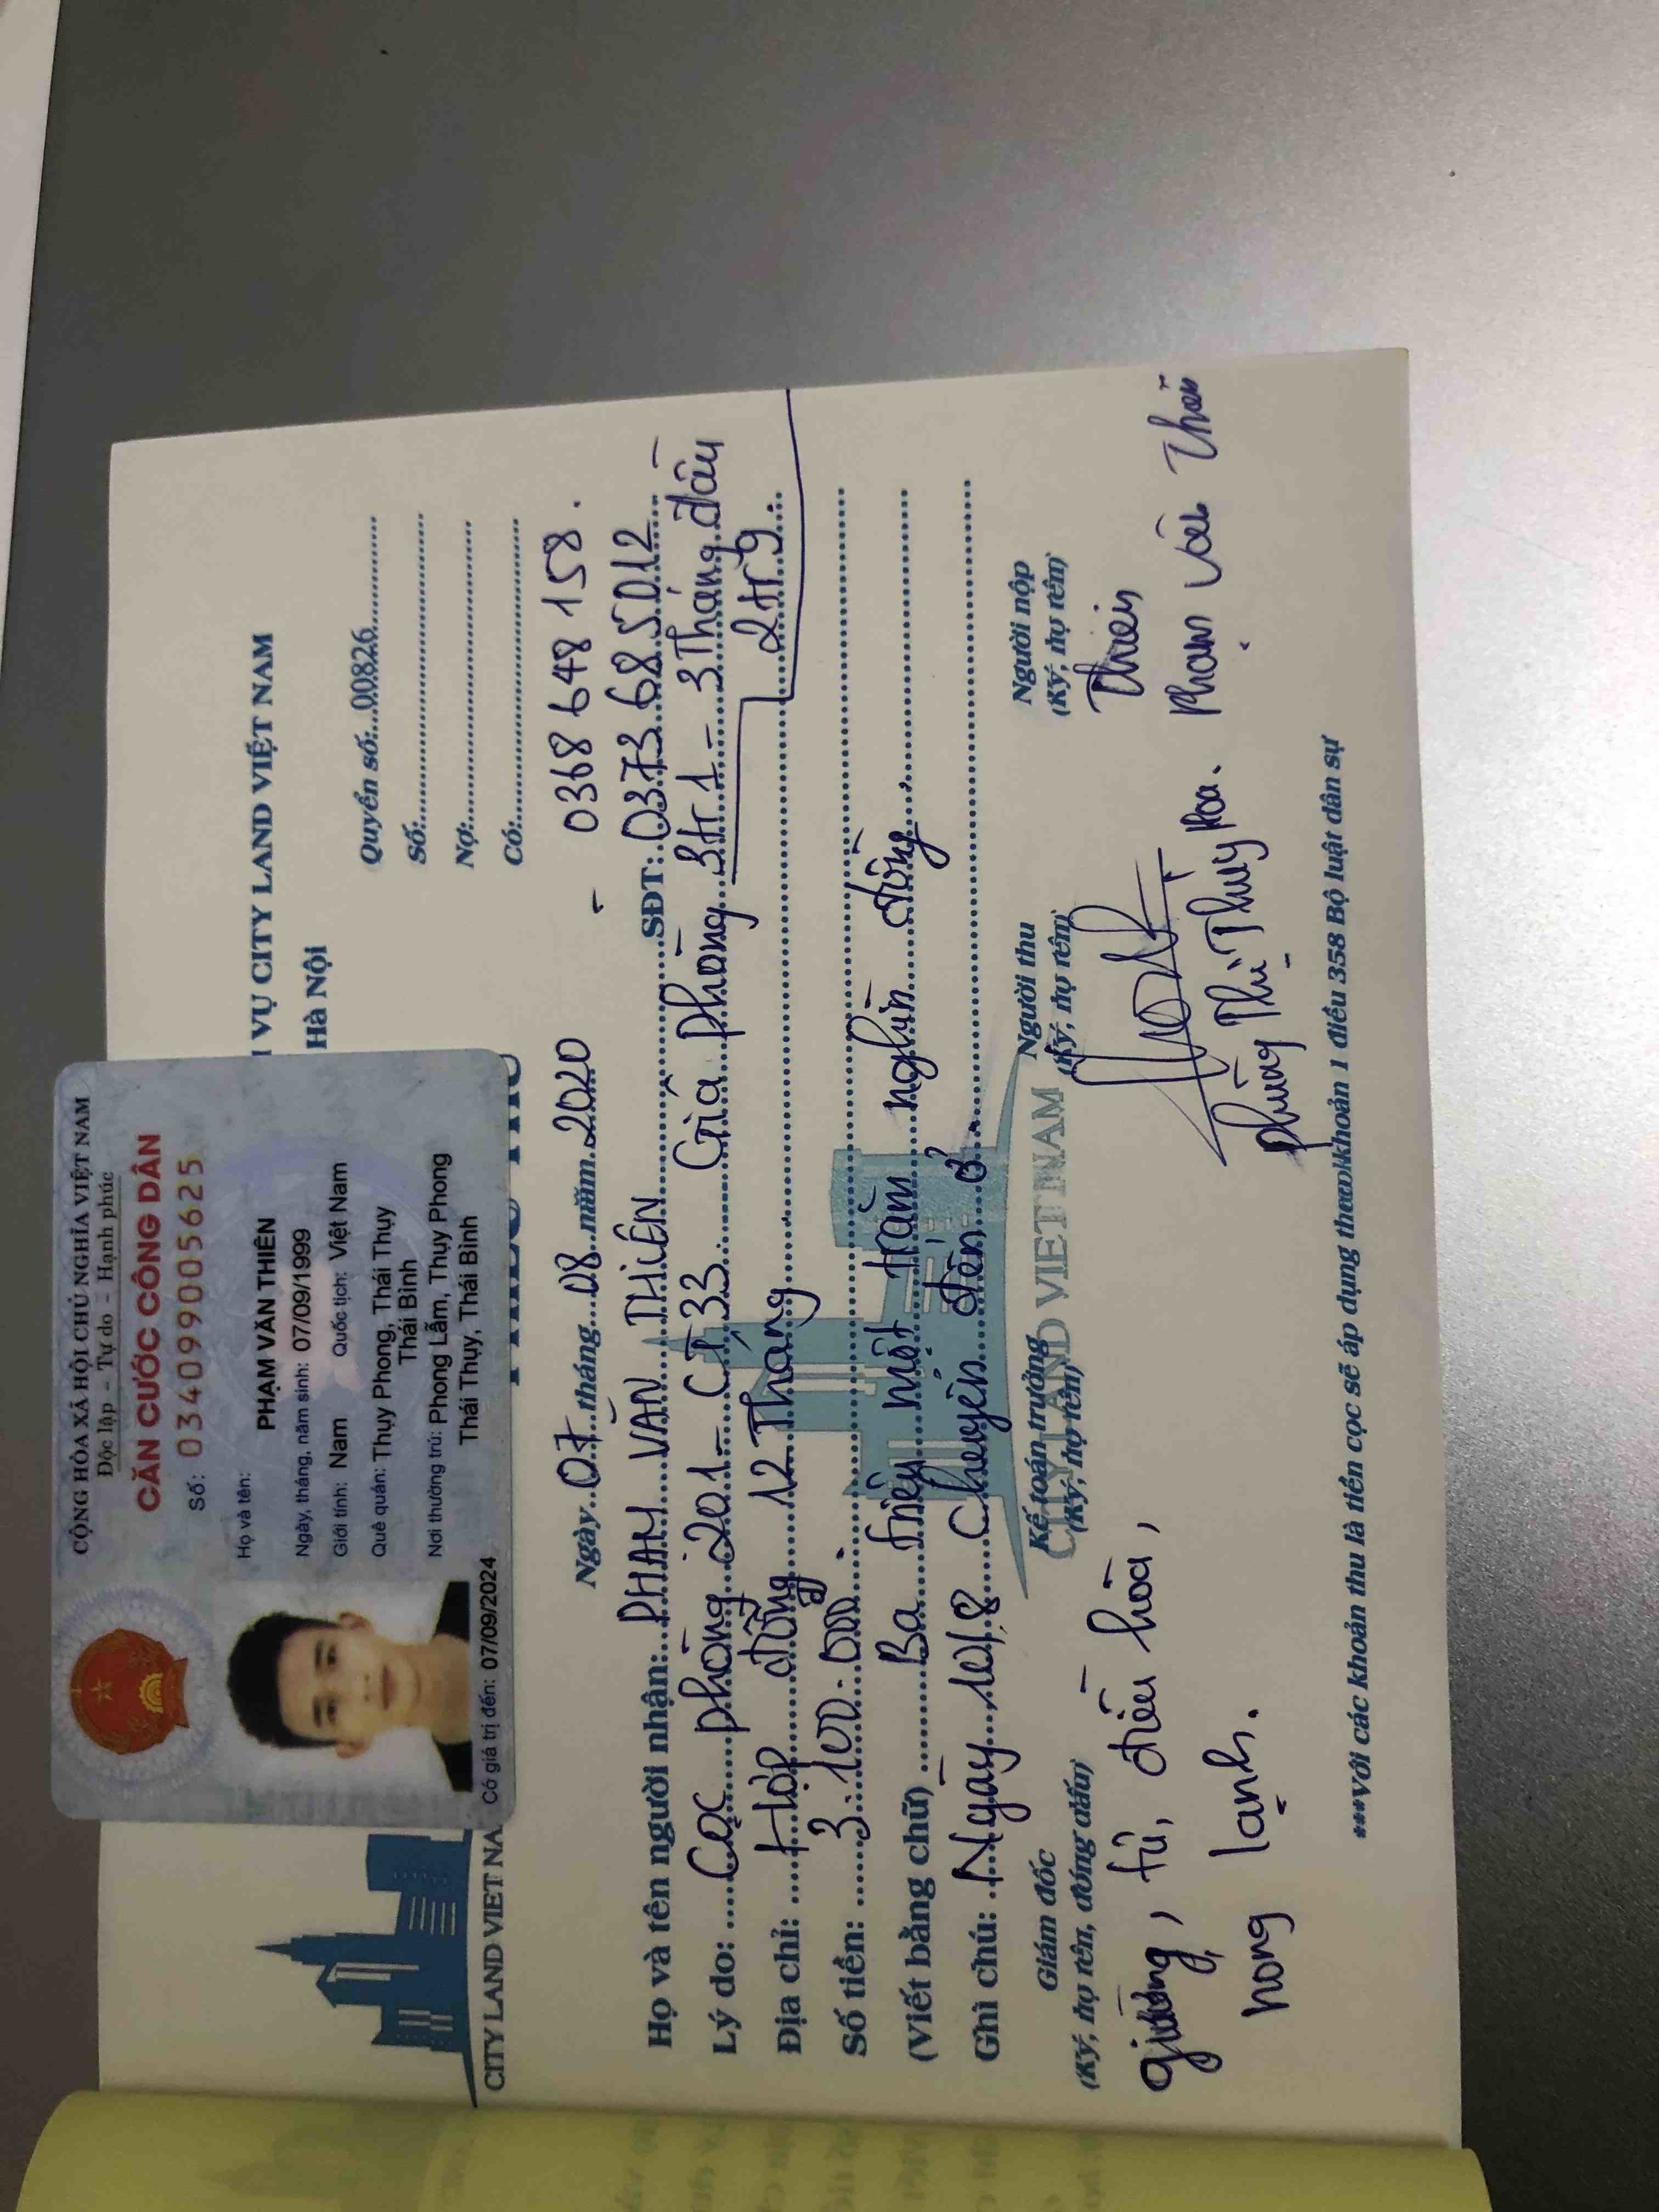 CỘNG HÒA XÃ HỘI CHỦ NGHĨA VIỆT NAM
Độc lập - Tự do - Hạnh phúc
CĂN CƯỚC CÔNG DÂN
Số: 034099005625
Họ và tên:
PHẠM VĂN THIÊN
Ngày, tháng, năm sinh: 07/09/1999
Giới tính: Nam Quốc tịch: Việt Nam
Quê quán: Thụy Phong, Thái Thụy
Thái Bình
Nơi thường trú: Phong Lẫm, Thụy Phong
Thái Thụy, Thái Bình
Có giá trị đến: 07/09/2024
VỤ CITY LAND VIỆT NAM
Hà Nội
Quyển số:...00826
Số:
Nợ:
Có:
CITY LAND VIET NA
Ngày..07..tháng...08...năm.2020
- 0368 648 158.
Họ và tên người nhận: PHẠM VĂN THIÊN SĐT: 0373 68 5012
Lý do: Cọc phòng 201 - CT33 Giá phòng 3tr1 - 3 Tháng đầu
2tr9.
Địa chỉ: Hợp đồng 12 Tháng
Số tiền: 3.100.000
(Viết bằng chữ) Ba triệu một trăm nghìn đồng
Ghi chú: Ngày 10/8 chuyển đến ở.
CITY LAND VIET NAM
Giám đốc
(Ký, họ tên, đóng dấu)
Kế toán trưởng
(Ký, họ tên)
Người thu
(Ký, họ tên)
Người nộp
(Ký, họ tên)
giường, tủ, điều hòa,
nong lạnh.
Phùng Thị Thúy Hoa.
Thiên
Phạm Văn Thiên
***Với các khoản thu là tiền cọc sẽ áp dụng theo khoản 1 điều 358 Bộ luật dân sự